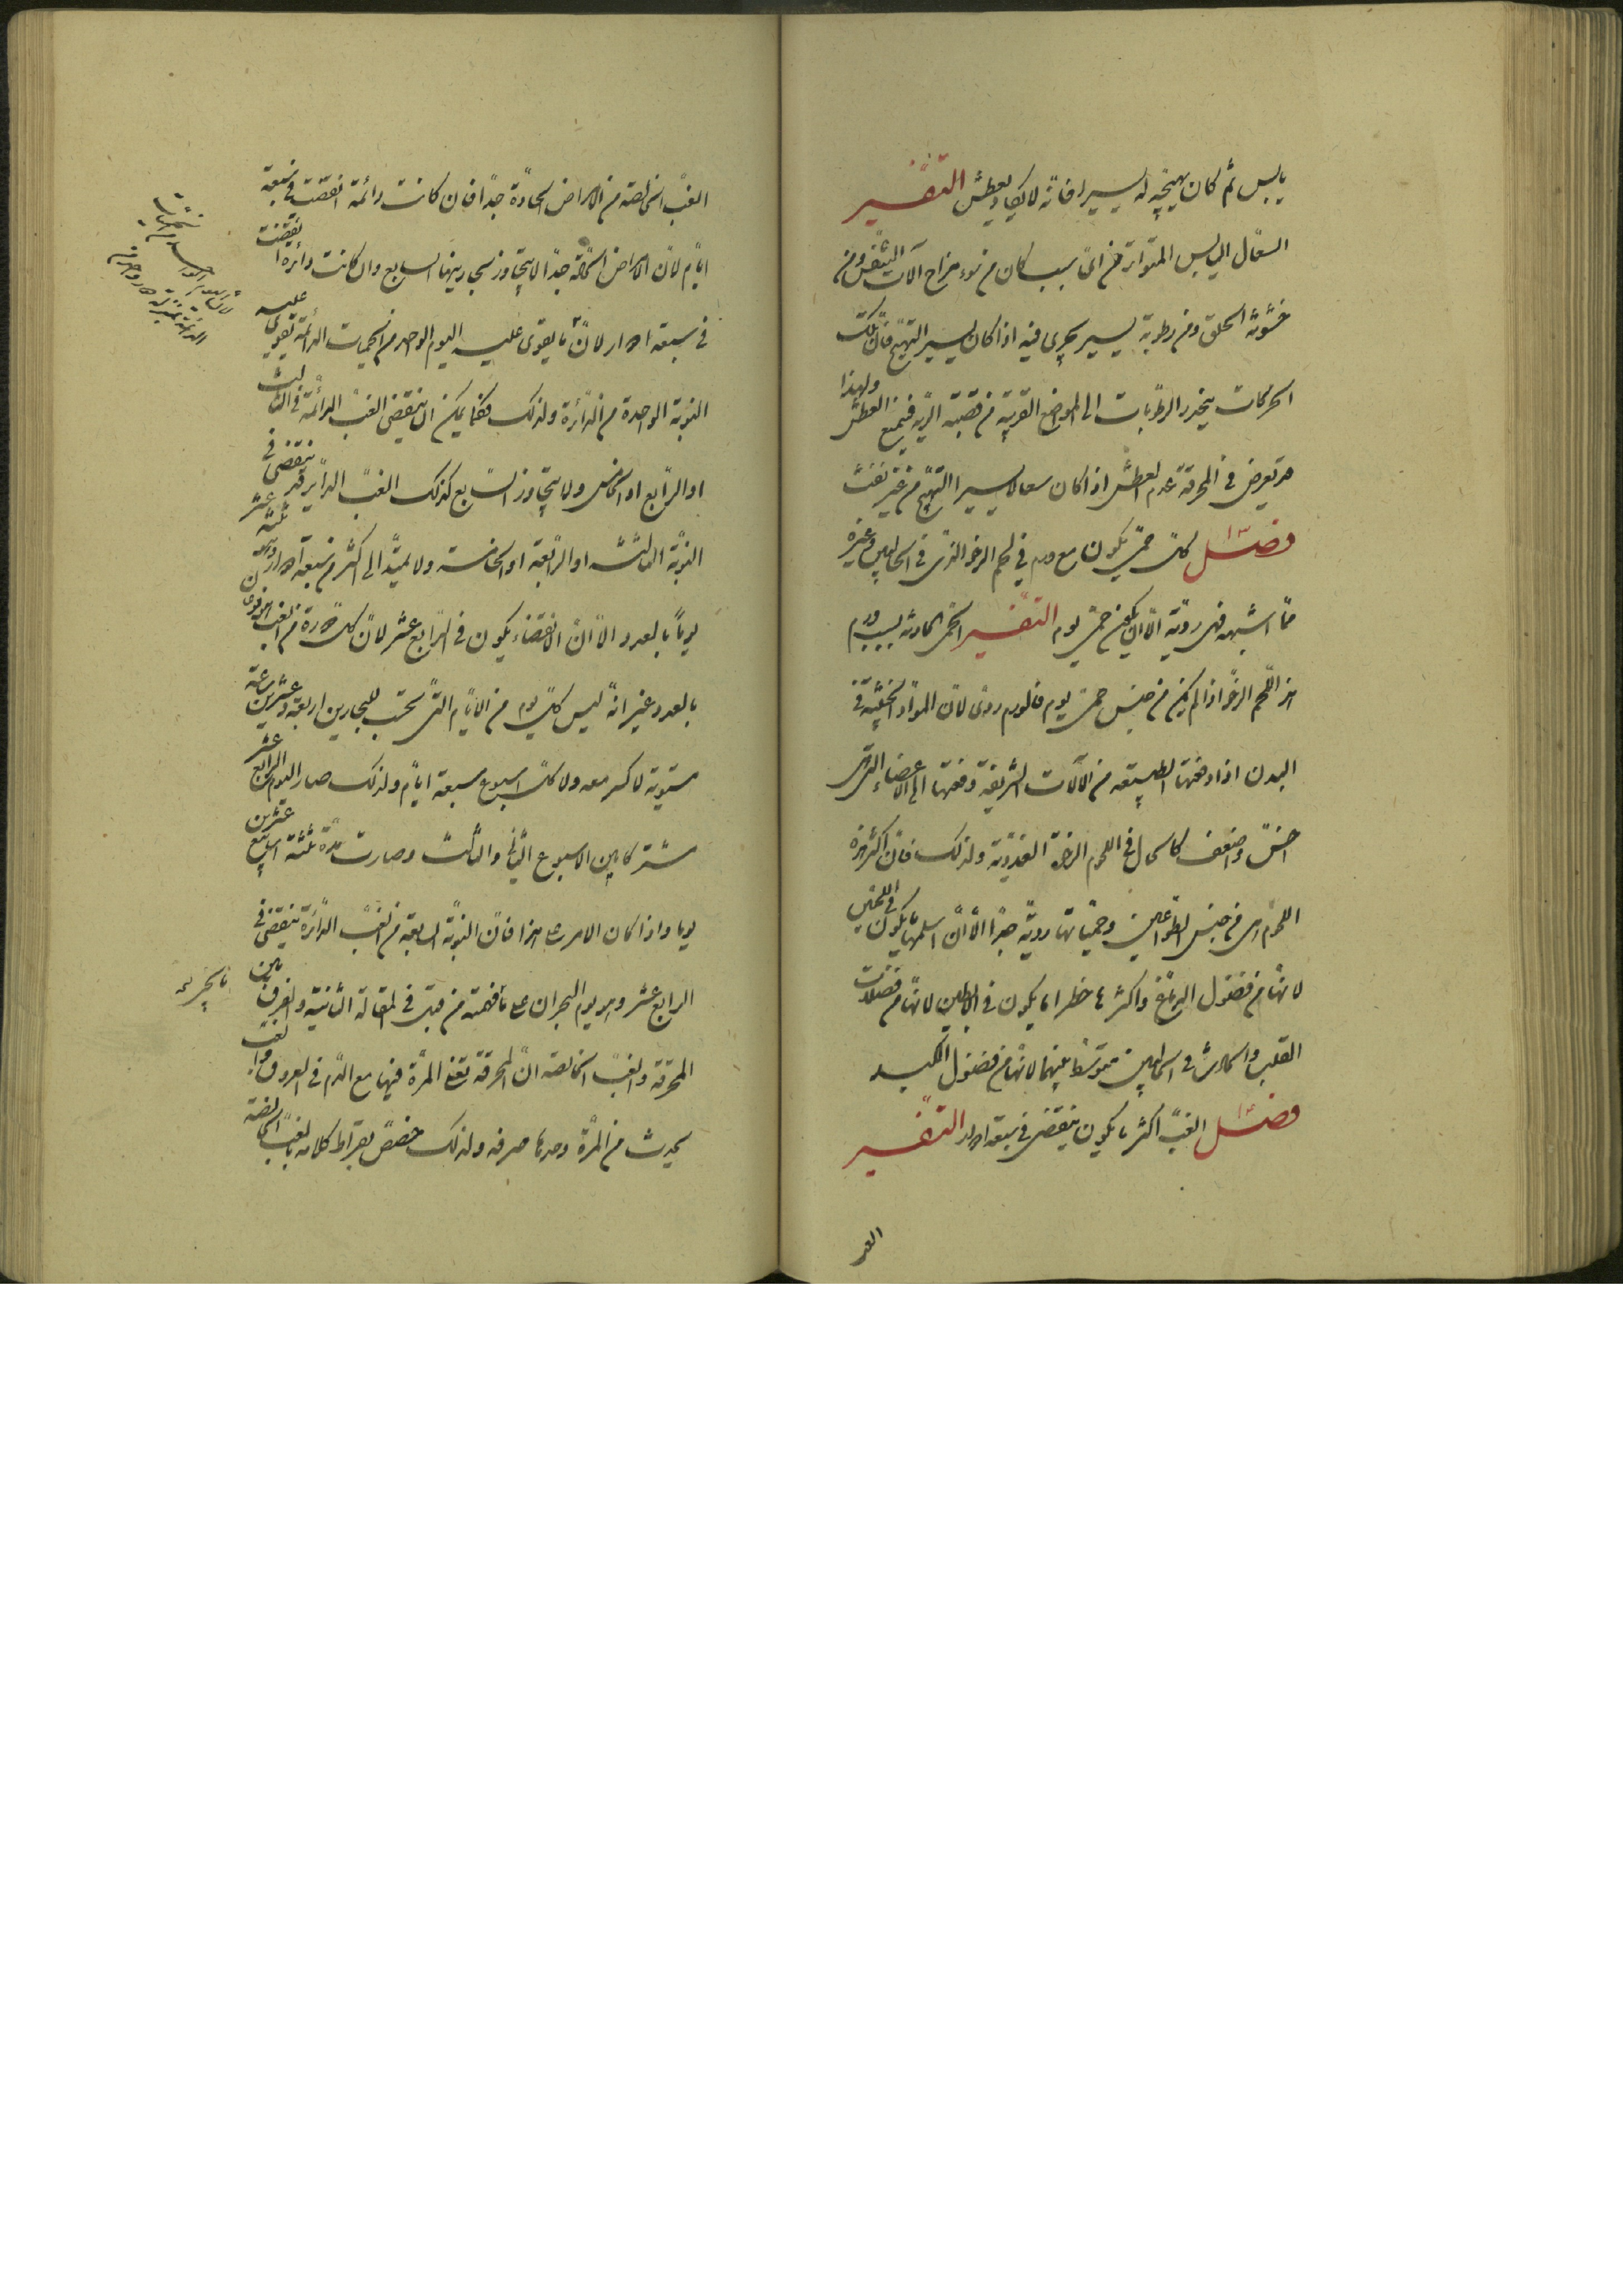 يابس ثم كان تهييجه له يسيرا فانه لا يكاد يعطش التفسير
السعال اليابس المتواتر من اي سبب كان من سوء مزاج آلات التنفس ومن
خشونة الحلق ومن رطوبة يسير يجرى فيه اذا كان يسير التهيج فان تلك
الحركات يتحدر الرطوبات الى المواضع القريبة من قصبة الرية فيمنع العطش ولهذا
قد يعرض في المحرقة عدم العطش اذا كان سعال يسير التهيج من غير نفث
فصل كل حمى يكون مع ورم في لحم الرخو الذى في الحالبين وغيره
مما اشبهه فهى رديّة الا ان يكون حمى يوم التفسير الحمى الحادثة بسبب ورم
هذا اللحم الرخو اذا لم يكن من جنس حمى يوم فالورم ردى لان المواد الخبيثة في
البدن اذا دفعتها الطبيعة من الآلات الشريفة دفعتها الى الاعضاء التى هى
اخس واضعف كالحال في اللحوم الرخوة الغددية ولذلك فان اكثر هذه
اللحوم هى من جنس الطواعين وحمياتها رديّة جدا الا ان اسلمها ما يكون في اللحيين
لانها من فضول الدماغ واكثرها خطرا ما يكون في الابطين لانها من فضلات
القلب والحادث في الحالبين متوسط بينهما لانها من فضول الكبد
فصل الغبّ اكثر ما يكون ينقضى في سبعة ادوار التفسير
الغب
الغبّ الخالصة من الامراض الحادّة جدا فان كانت دائمة انقضت في سبعة
ايام لان الامراض الحادّة جدا لا يتجاوز بحارينها السابع وان كانت دائرة انقضت
في سبعة ادوار لان ما يقوى عليه اليوم الواحد من الحميات الدائمة يقوى عليه
النوبة الواحدة من الدائرة ولذلك فكما يمكن ان ينقضى الغبّ الدائمة في الثالث
او الرابع او الخامس ولا يتجاوز السابع كذلك الغبّ الدائر قد ينقضى في
النوبة الثالثة او الرابعة او الخامسة ولا يمتد الى اكثر من سبعة ادوار وهى ثلثة عشر
يوما بالعدد الا ان الانقضاء يكون في الرابع عشر لان كل دورة من الغبّ
بالعدد غير انه ليس كل يوم من الايام التى تحسب للبحارين اربعة وعشرين ساعة
مستوية لا كسر معه ولا كل اسبوع سبعة ايام ولذلك صار اليوم الرابع عشر
مشتركا بين الاسبوع الثاني والثالث وصارت مدة ثلثة اسابيع عشرين
يوما واذا كان الامر على هذا فان النوبة السابعة من الغبّ الدائرة ينقضى في
الرابع عشر وهو يوم البحران على ما فهمته من قبل في المقالة الثانية والفرق بين
المحرقة والغبّ الخالصة ان المحرقة تعفن المرّة فيها مع الدم في العروق والغبّ
يحدث من المرّة وحدها صرفة ولذلك خصص بقراط كلامه بالغبّ الخالصة